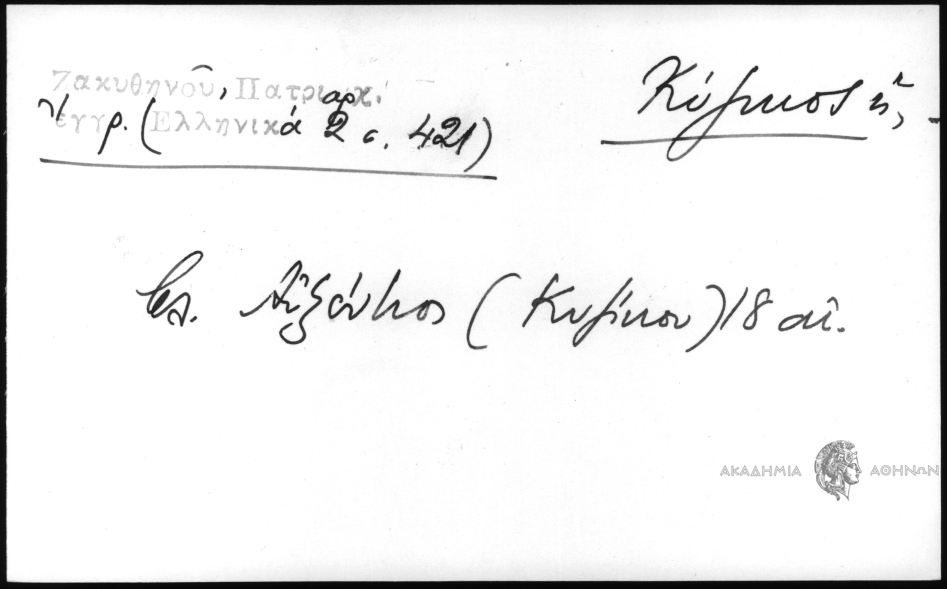 Ζακυθηνοῦ, Πατριαρχ.
έγγρ. (Ἑλληνικά 2 σ. 421)
Κύζικος ἡ,
βλ. Αὐξέντιος (Κυζίκου) 18 αἰ.
ΑΚΑΔΗΜΙΑ ΑΘΗΝΩΝ